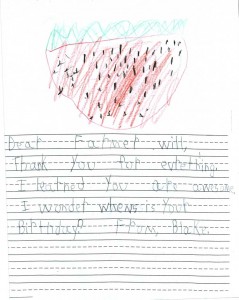 Dear Farmer Will,
Thank You for evrething.
I learned You are awesome
I wonder whens is your
Birthday? From, Blake